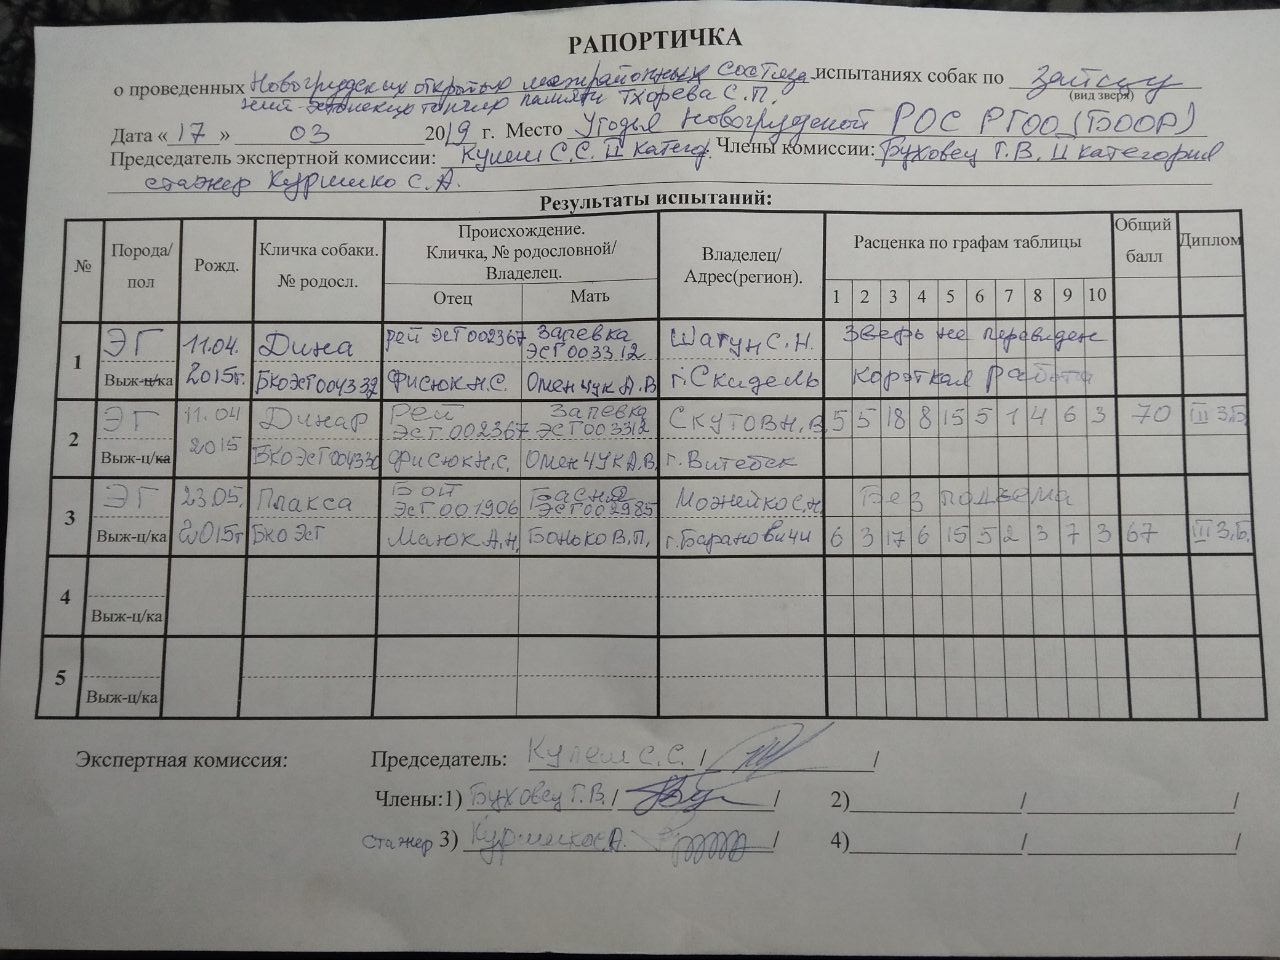 РАПОРТИЧКА
о проведенных Новогрудских открытых межрайонных состяза- испытаниях собак по зайцу
ний эстонских гончих памяти Тхорева С.П. (вид зверя)
Дата «17» 03 2019 г. Место Угодья Новогрудской РОС РГОО (БООР)
Председатель экспертной комиссии: Кулеш С.С. II категор. Члены комиссии: Буховец Г.В. II категория
стажер Курмико С.А.
Результаты испытаний:
№ Порода/ пол Рожд. Кличка собаки. № родосл. Происхождение. Кличка, № родословной/ Владелец. Владелец/ Адрес(регион). Расценка по графам таблицы Общий балл Диплом
Отец Мать 1 2 3 4 5 6 7 8 9 10
1 ЭГ 11.04. Дина Рей ЭСГ002367 Запевка ЭСГ003312 Шатун С.Н. Зверь не перевиден
Выж-ц/ка 2015г. БКОЭСГ004332 Фисюк Н.С. Оменчук А.В г. Скидель Короткая работа
2 ЭГ 11.04 Динар Рей ЭСГ002367 Запевка ЭСГ003312 Скутов Н.В. 5 5 18 8 15 5 1 4 6 3 70 III З.Б.
Выж-ц/ка 2015 БКОЭСГ004330 Фисюк Н.С. Оменчук А.В. г. Витебск
3 ЭГ 23.05. Плакса Бой ЭСГ001906 Басня ЭСГ002985 Можейко С.Н. Без подъема
Выж-ц/ка 2015г БКОЭСГ Малюк А.Н. Бонько В.П. г. Барановичи 6 3 17 6 15 5 2 3 7 3 67 III З.Б.
4
Выж-ц/ка
5
Выж-ц/ка
Экспертная комиссия: Председатель: Кулеш С.С. / /
Члены:1) Буховец Г.В. / / 2) / /
стажер 3) Курмико С.А. / 4) / /